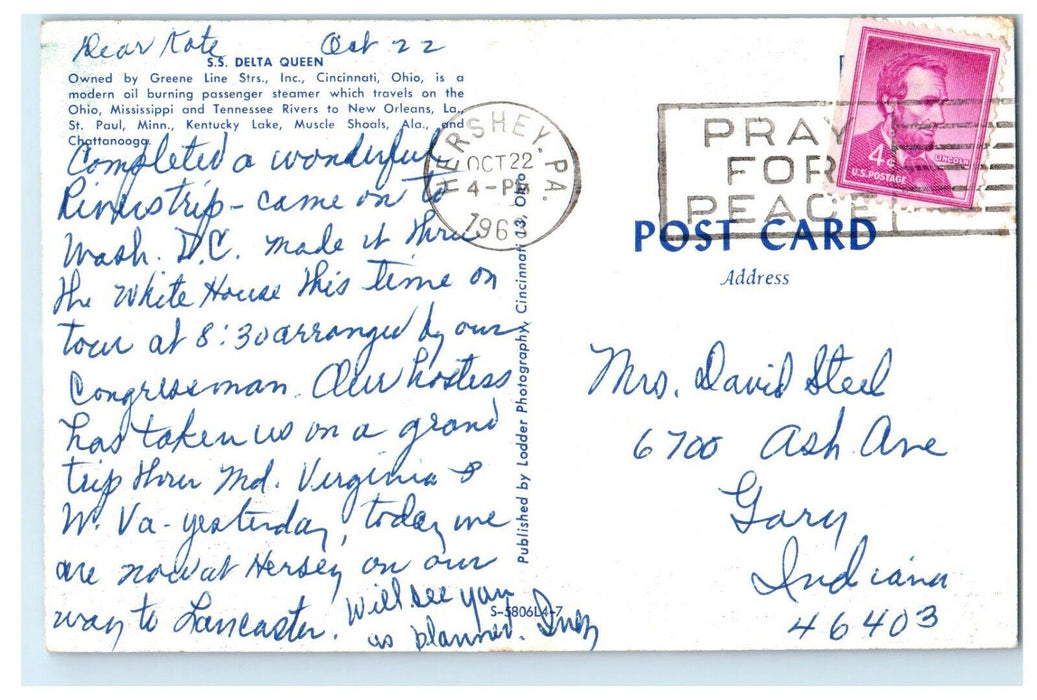 Dear Kate Oct 22
S.S. DELTA QUEEN
Owned by Greene Line Strs., Inc., Cincinnati, Ohio, is a
modern oil burning passenger steamer which travels on the
Ohio, Mississippi and Tennessee Rivers to New Orleans, La.,
St. Paul, Minn., Kentucky Lake, Muscle Shoals, Ala., and
Chattanooga.
Completed a wonderful
River trip - came on to
Wash. D.C. made it thru
the White House this time on
tour at 8:30 arranged by our
Congressman. Our hostess
has taken us on a grand
trip thru Md. Virginia &
W. Va - yesterday, today we
are now at Hersey on our
way to Lancaster. Will see you
as planned. Inez
S-5806L4-7
Published by Lodder Photography, Cincinnati 13, Ohio
HERSHEY, PA.
OCT 22
4 - PM
196
PRAY
FOR
PEACE
4¢
LINCOLN
U.S. POSTAGE
POST CARD
Address
Mrs. David Steel
6700 Ash Ave
Gary
Indiana
46403